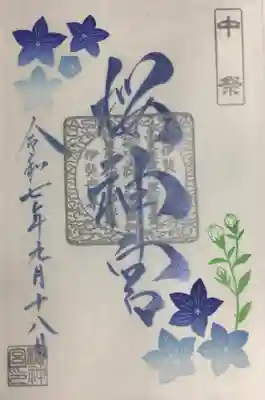 中祭
桜神宮
令和七年九月十八日